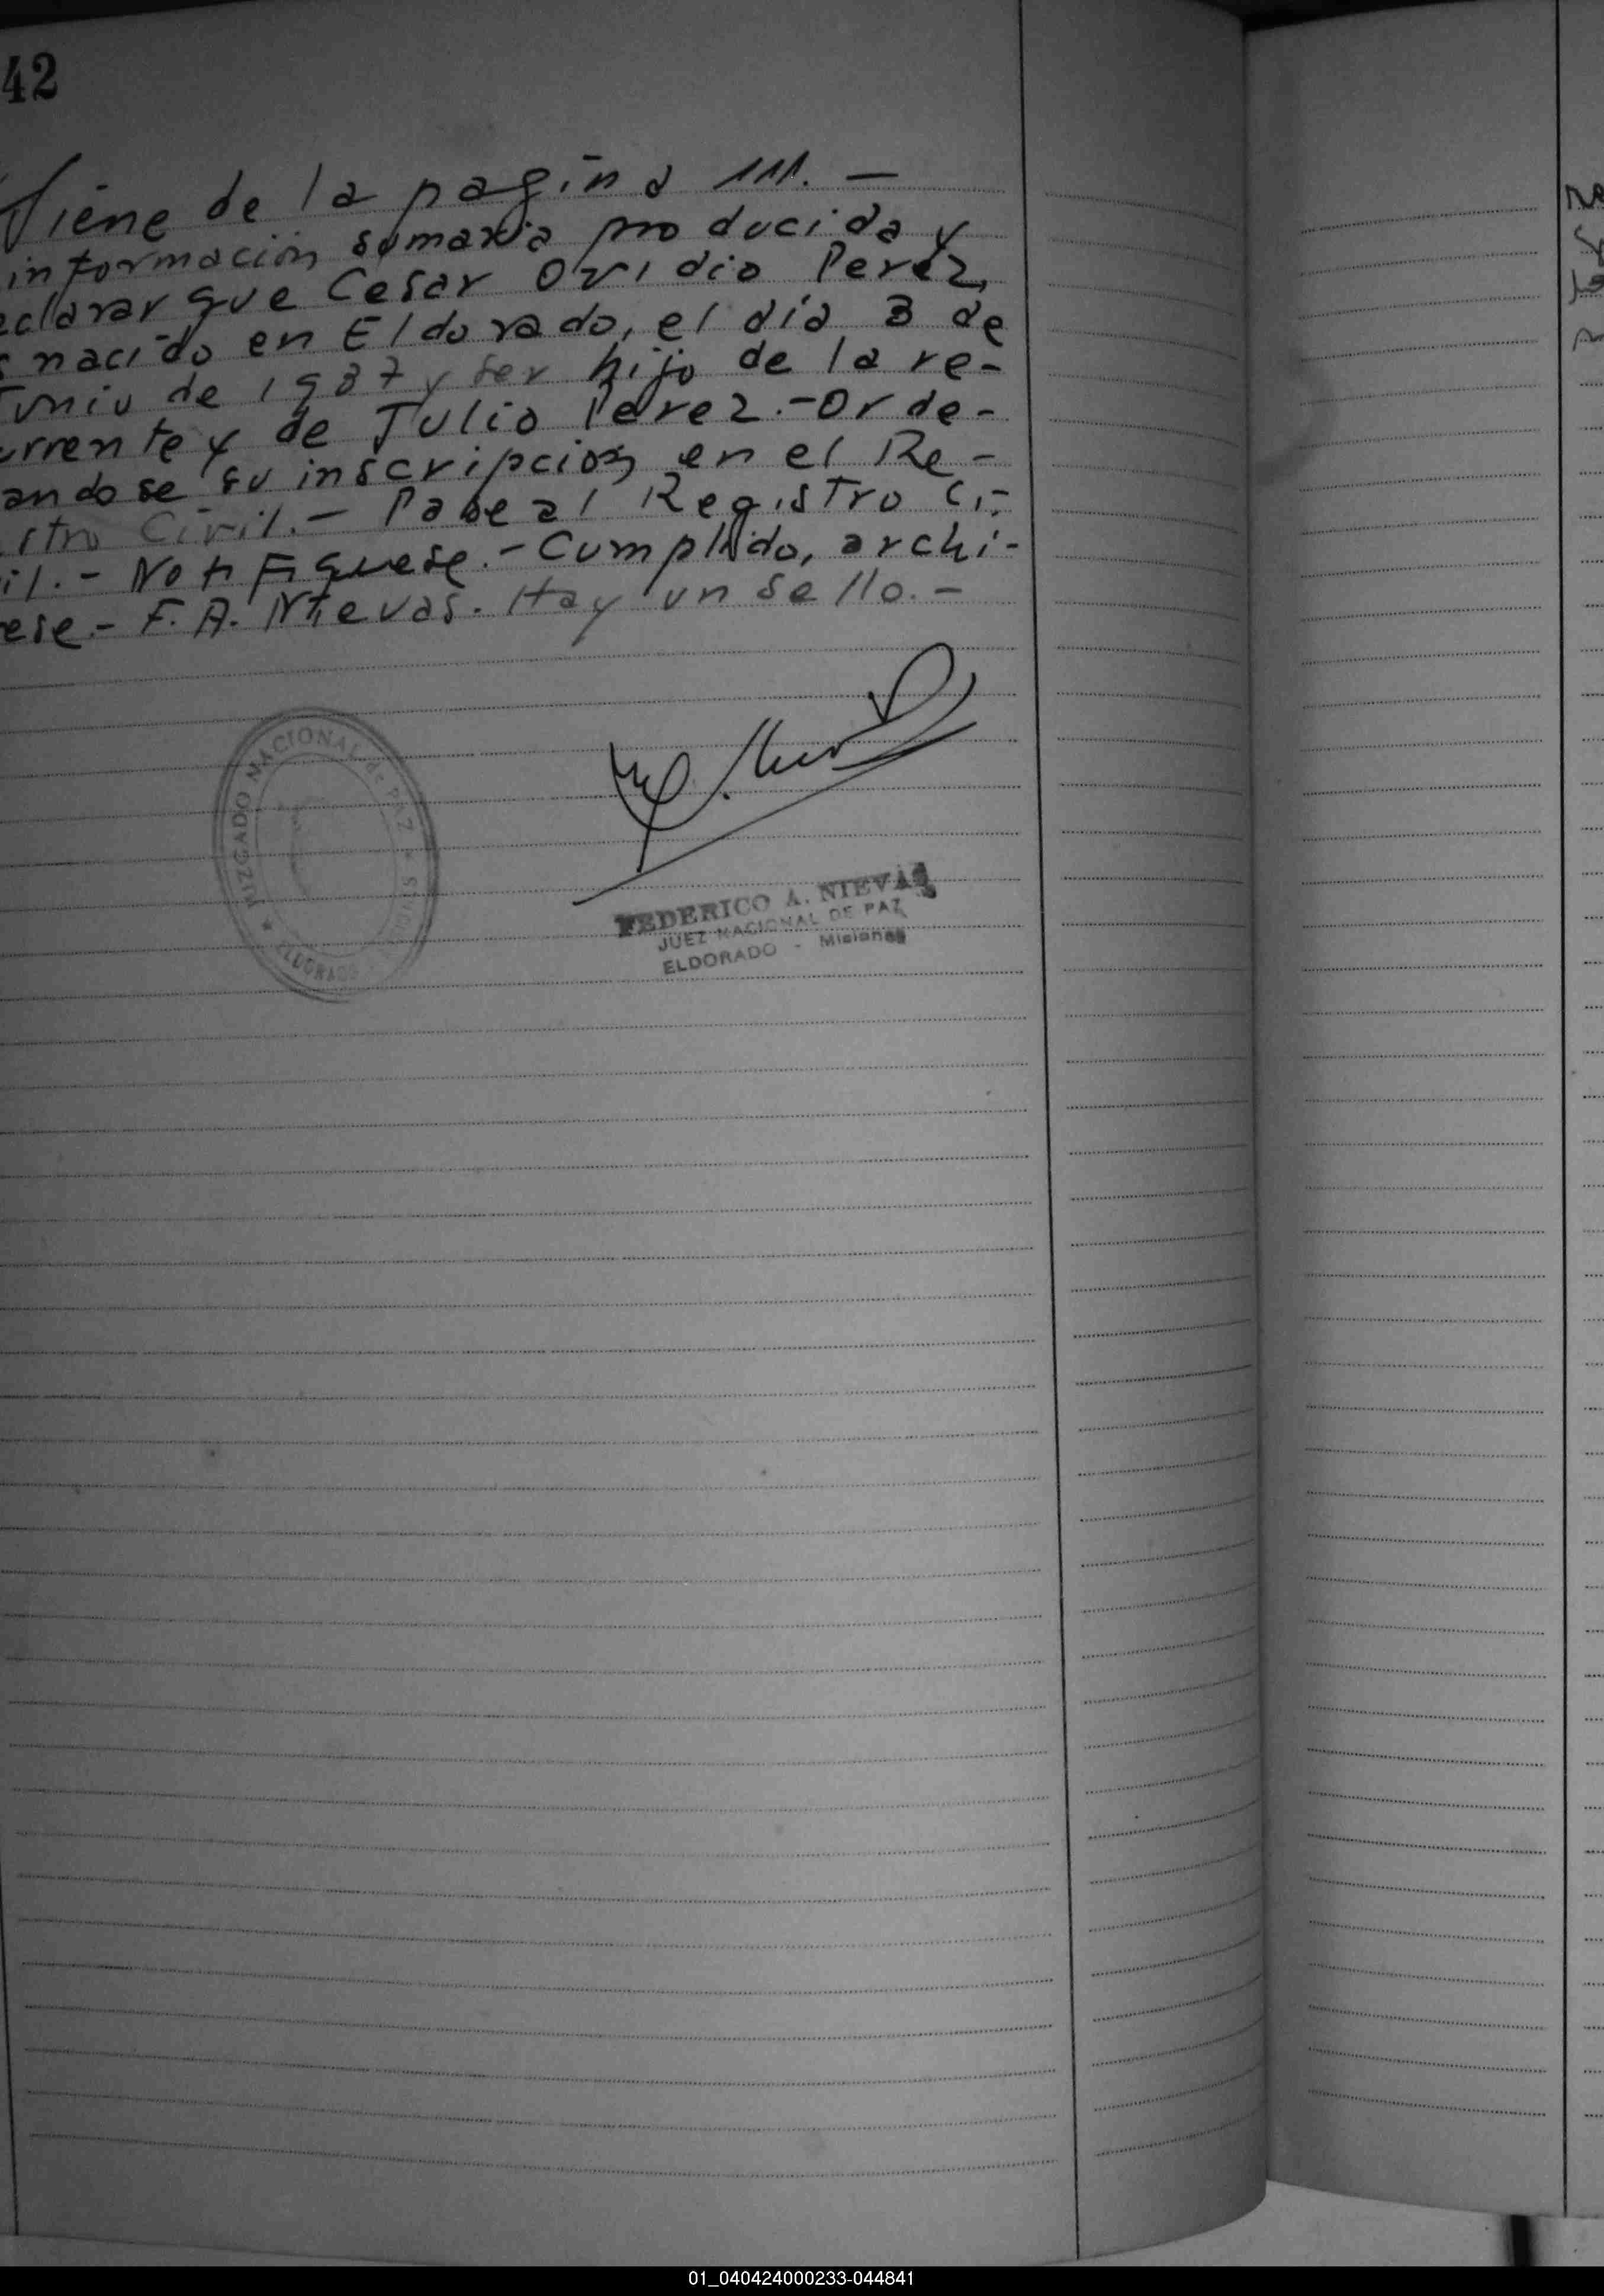 42
Viene de la pagina 111. —
información sumaria producida y
eclarar que Cesar Ovidio Perez,
s nacido en Eldorado, el día 3 de
Junio de 1937 y ser hijo de la re-
urrente y de Julio Perez.- Orde-
andose su inscripcion en el Re-
istro Civil.- Pase al Registro Ci-
il.- Notifiquese.- Cumplido, archi-
ese.- F. A. Nievas. Hay un sello.-
JUZGADO NACIONAL de PAZ
ELDORADO
FEDERICO A. NIEVAS
JUEZ NACIONAL DE PAZ
ELDORADO - Misiones
01_040424000233-044841